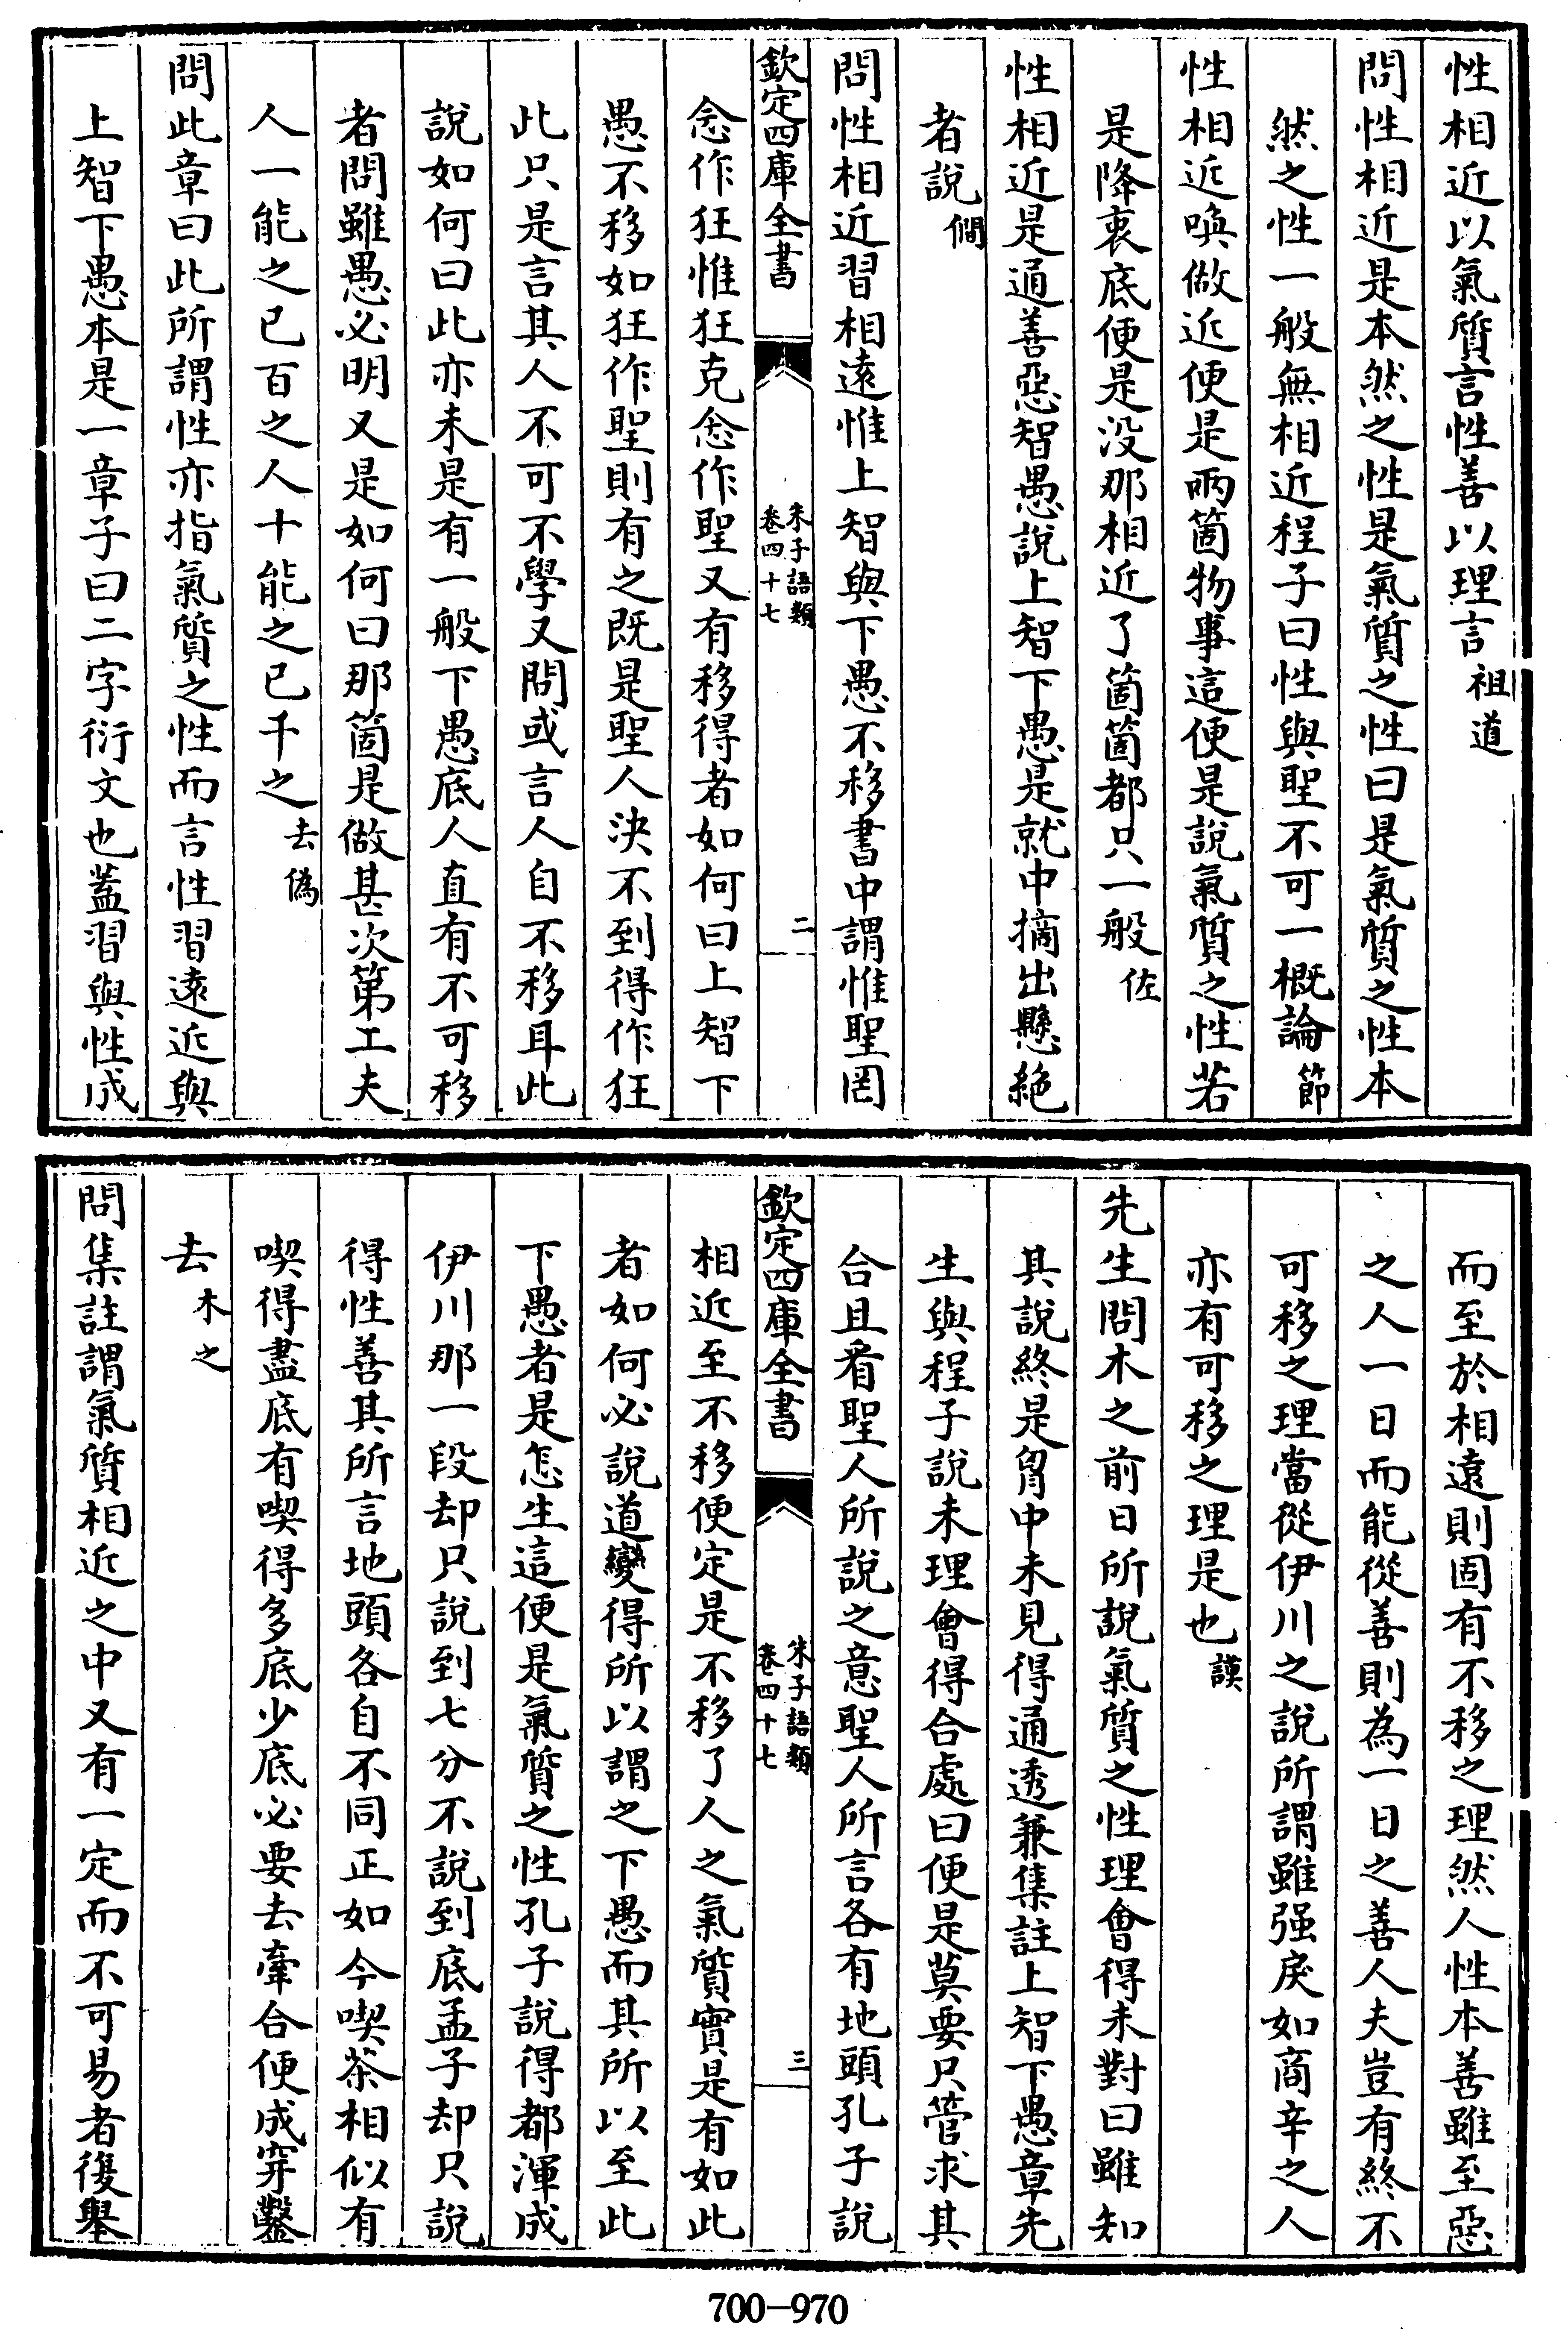 性相近以氣質言性善以理言祖道
問性相近是本然之性是氣質之性曰是氣質之性本
然之性一般無相近程子曰性與聖不可一概論節
性相近喚做近便是兩箇物事這便是說氣質之性若
是降衷底便是没那相近了箇箇都只一般佐
性相近是通善惡智愚說上智下愚是就中摘出懸絶
者說僩
問性相近習相遠惟上智與下愚不移書中謂惟聖罔
欽定四庫全書
朱子語類
卷四十七
二
念作狂惟狂克念作聖又有移得者如何曰上智下
愚不移如狂作聖則有之既是聖人決不到得作狂
此只是言其人不可不學又問或言人自不移耳此
說如何曰此亦未是有一般下愚底人直有不可移
者問雖愚必明又是如何曰那箇是做甚次第工夫
人一能之已百之人十能之已千之去偽
問此章曰此所謂性亦指氣質之性而言性習遠近與
上智下愚本是一章子曰二字衍文也蓋習與性成
而至於相遠則固有不移之理然人性本善雖至惡
之人一日而能從善則為一日之善人夫豈有終不
可移之理當從伊川之說所謂雖强戾如商辛之人
亦有可移之理是也謨
先生問木之前日所說氣質之性理會得未對曰雖知
其說終是胷中未見得通透兼集註上智下愚章先
生與程子說未理會得合處曰便是莫要只管求其
合且看聖人所說之意聖人所言各有地頭孔子說
欽定四庫全書
朱子語類
卷四十七
三
相近至不移便定是不移了人之氣質實是有如此
者如何必說道變得所以謂之下愚而其所以至此
下愚者是怎生這便是氣質之性孔子說得都渾成
伊川那一段却只說到七分不說到底孟子却只說
得性善其所言地頭各自不同正如今喫茶相似有
喫得盡底有喫得多底少底必要去牽合便成穿鑿
去木之
問集註謂氣質相近之中又有一定而不可易者復舉
700-970